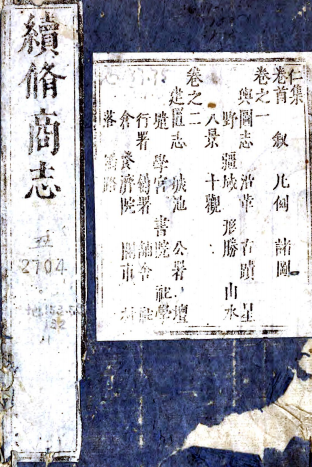 續脩商志
五
2704
仁集
卷首 叙 凡例 諸圖
卷之一
輿圖志 沿革 古蹟 星
野 疆域 形勝 山水
八景 十觀
卷之二
建置志 城池 公署 壇
壝 學宮 書院 社學
行署 舖舍
倉 養濟院 關市 村
落